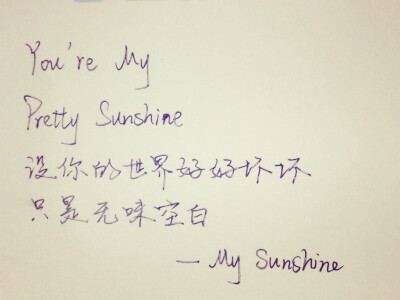 You're My
Pretty Sunshine
没你的世界好好坏坏
只是无味空白
— My Sunshine